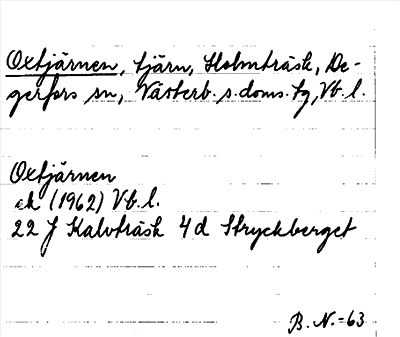 Oxtjärnen, tjärn, Holmträsk, De-
gerfors sn, Västerb. s. doms. tg, Vb. l.
Oxtjärnen
ek (1962) Vb. l.
22 J Kalvträsk 4 d Stryckberget
B. N. -63